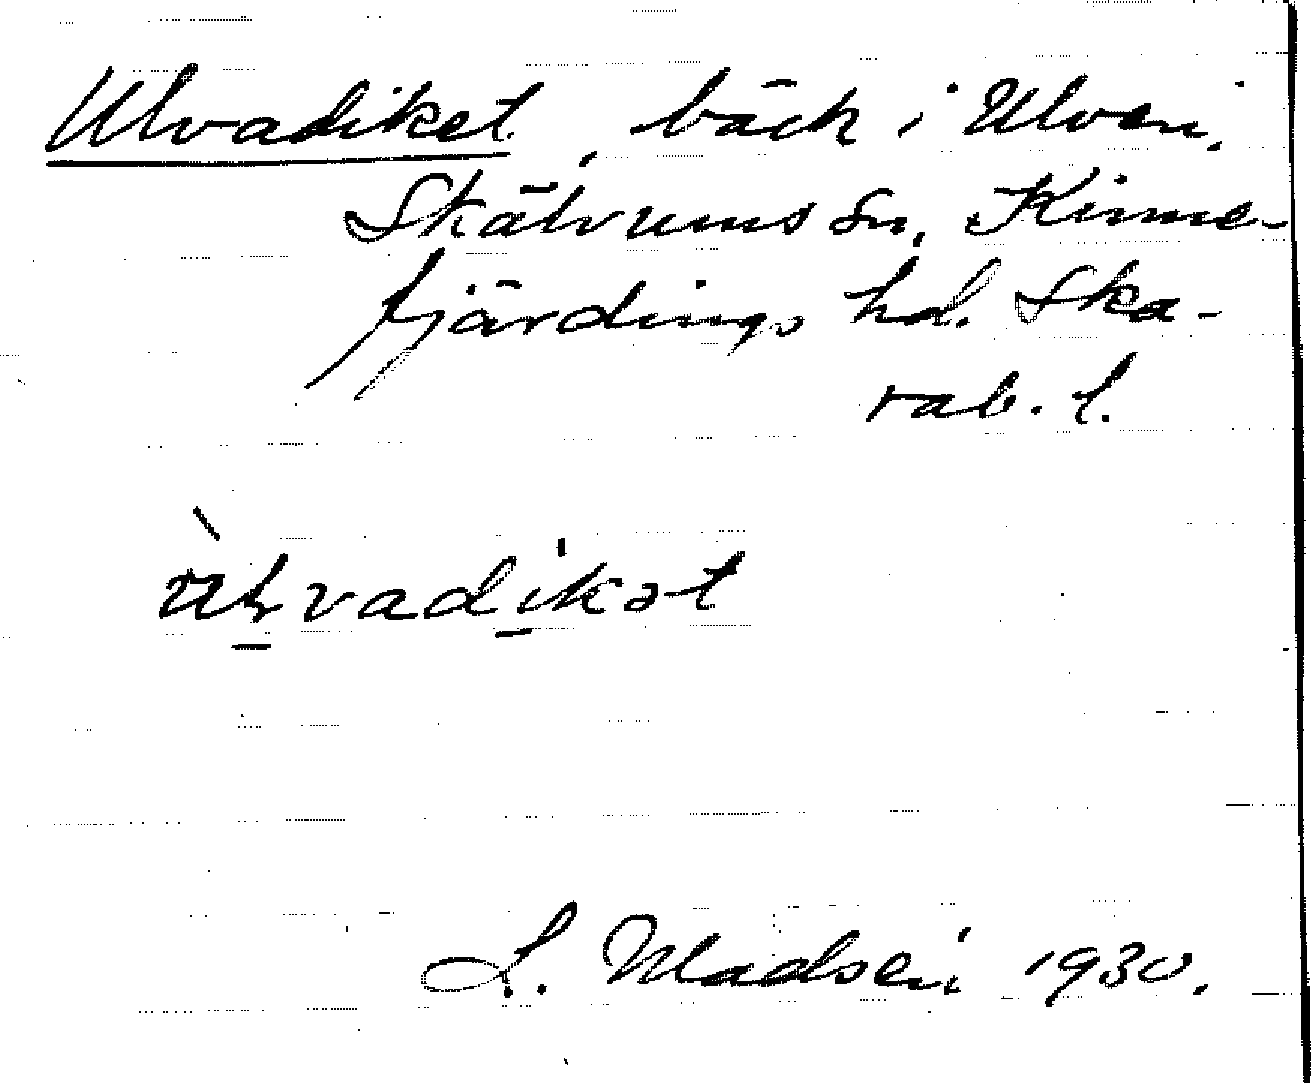 Ulvadiket, bäck i Ulven,
Skälvums sn, Kinne-
fjärdings hd. Ska-
rab. l.
ùlvadikət
L. Madsen 1930.